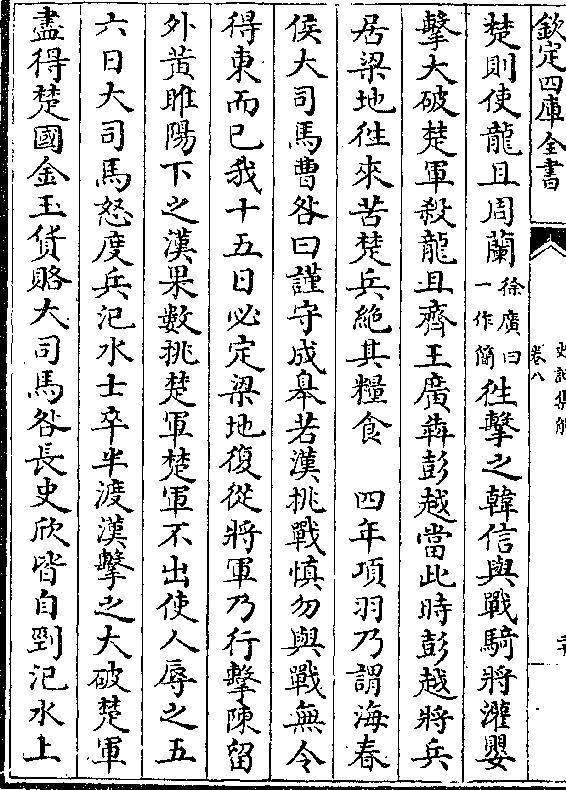 欽定四庫全書
史記集解
卷八
楚則使龍且周蘭徐廣曰一作簡往擊之韓信與戰騎將灌嬰
擊大破楚軍殺龍且齊王廣犇彭越當此時彭越將兵
居梁地往來苦楚兵絶其糧食　四年項羽乃謂海春
侯大司馬曹咎曰謹守成臯若漢挑戰慎勿與戰無令
得東而已我十五日必定梁地復從將軍乃行擊陳留
外黄睢陽下之漢果數挑楚軍楚軍不出使人辱之五
六日大司馬怒度兵汜水士卒半渡漢擊之大破楚軍
盡得楚國金玉貨賂大司馬咎長史欣皆自剄汜水上